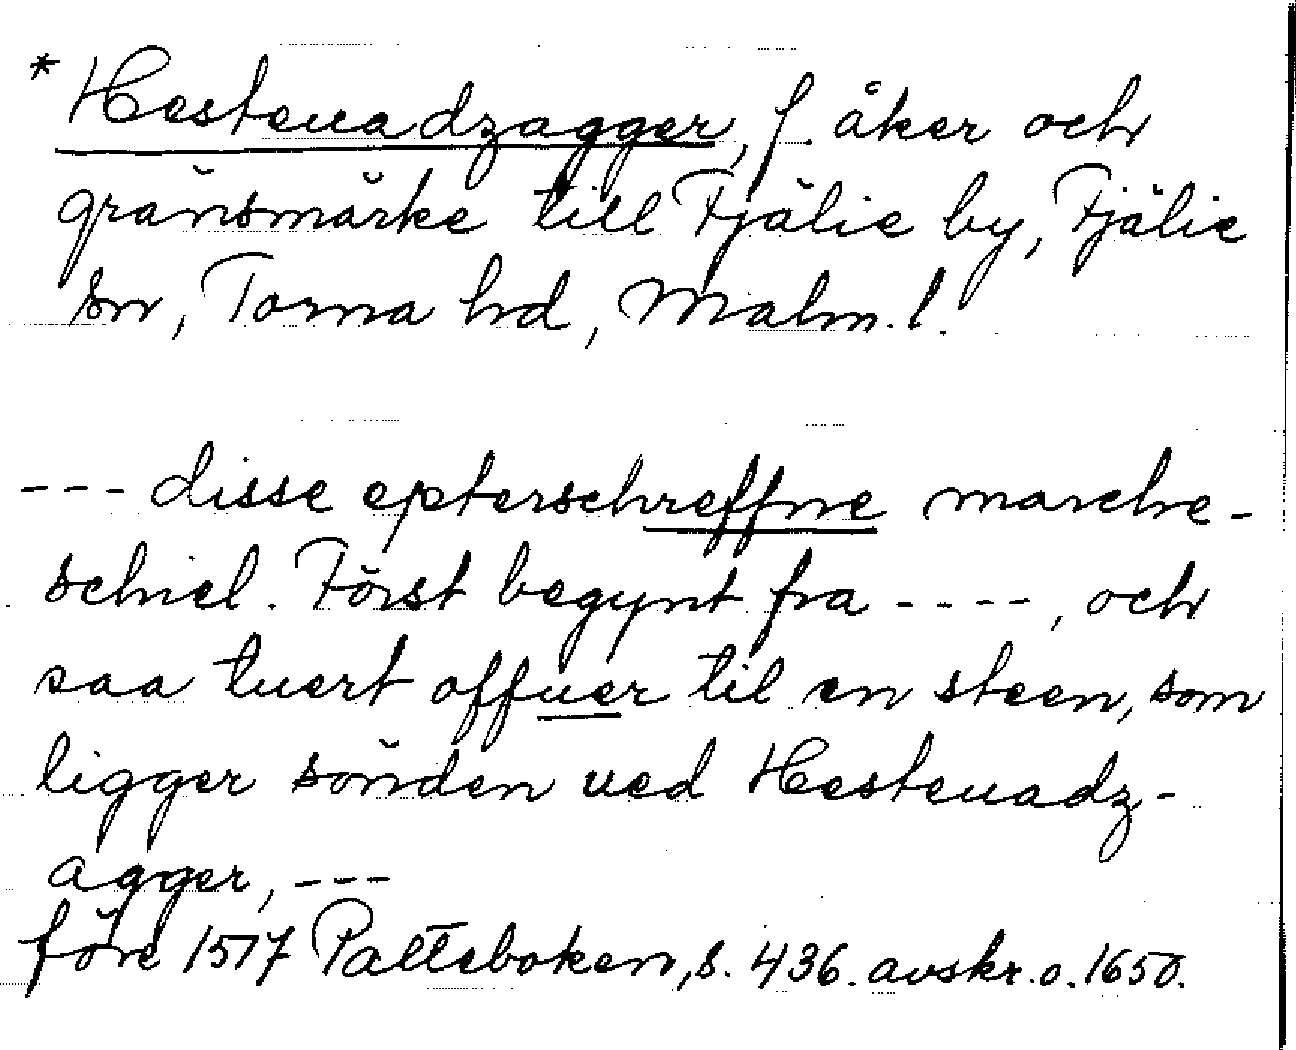 * Hesteuadzagger, f. åker och
gränsmärke till Fjälie by, Fjälie
sn, Torna hd, Malm. l.
--- disse epterschreffne marche-
schiel. Först begynt fra ----, och
saa tuert offuer til en steen, som
ligger sönden ued Hesteuadz-
agger, ---
före 1517 Palteboken, s. 436. avskr. o. 1650.